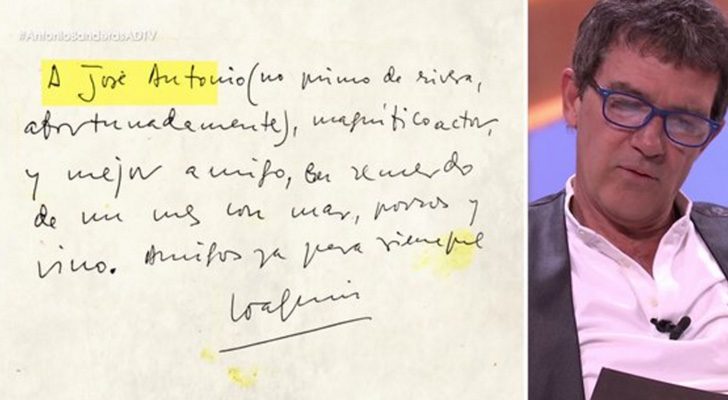 #AntonioBanderasADTV
A José Antonio (no primo de rivera,
afortunadamente), magnífico actor,
y mejor amigo, en recuerdo
de un mes con mar, porros y
vino. Amigos ya para siempre
Joaquin